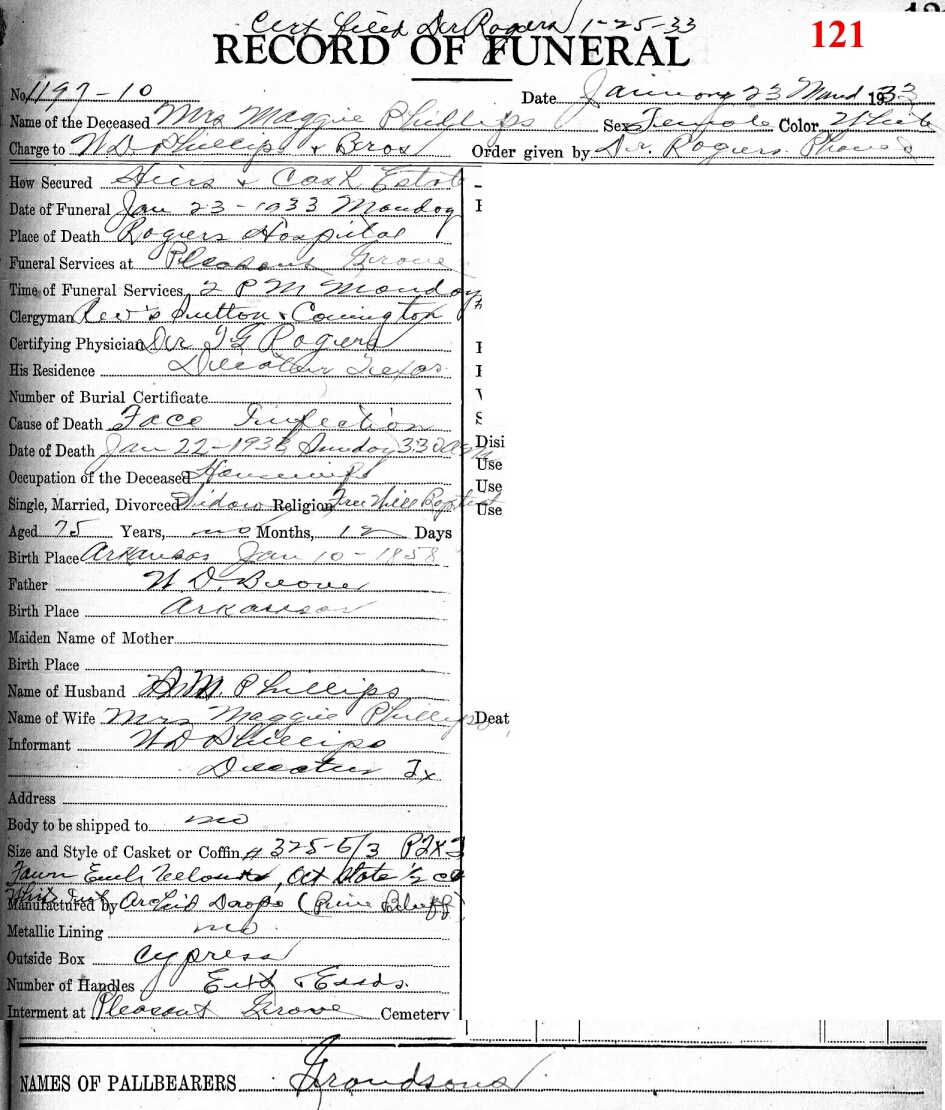 Cert filed Dr Rogers 1-25-33
121
RECORD OF FUNERAL
No. 1197-10 Date 23 1933
Name of the Deceased Mrs Maggie Phillips Sex Female Color White
Charge to W D Phillips & Bros Order given by Dr. Rogers. Phoned
How Secured Heirs & Cash Estat
Date of Funeral Jan 23-1933 Monday
Place of Death Rogers Hospital
Funeral Services at Pleasant Grove
Time of Funeral Services 2 PM Monday
Clergyman Rev's Sutton & Covington
Certifying Physician Dr T G Rogers
His Residence Decatur Texas
Number of Burial Certificate
Cause of Death Face Infection
Date of Death Jan 22-1933 Sunday 3 30 AM
Disi
Use
Occupation of the Deceased Housewife
Use
Single, Married, Divorced Widow Religion Free Will Baptist
Use
Aged 75 Years, no Months, 12 Days
Birth Place Arkansas Jan 10-1858
Father W D.
Birth Place Arkansas
Maiden Name of Mother
Birth Place
Name of Husband M Phillips
Name of Wife Mrs Maggie Phillips
Deat
Informant W D Phillips
Decatur Tx
Address
Body to be shipped to no
Size and Style of Casket or Coffin # 325-6/3
Fawn
Manufactured by (Pine Bluff)
Metallic Lining no
Outside Box Cypress
Number of Handles Ext
Interment at Pleasant Grove Cemetery
NAMES OF PALLBEARERS Grandsons